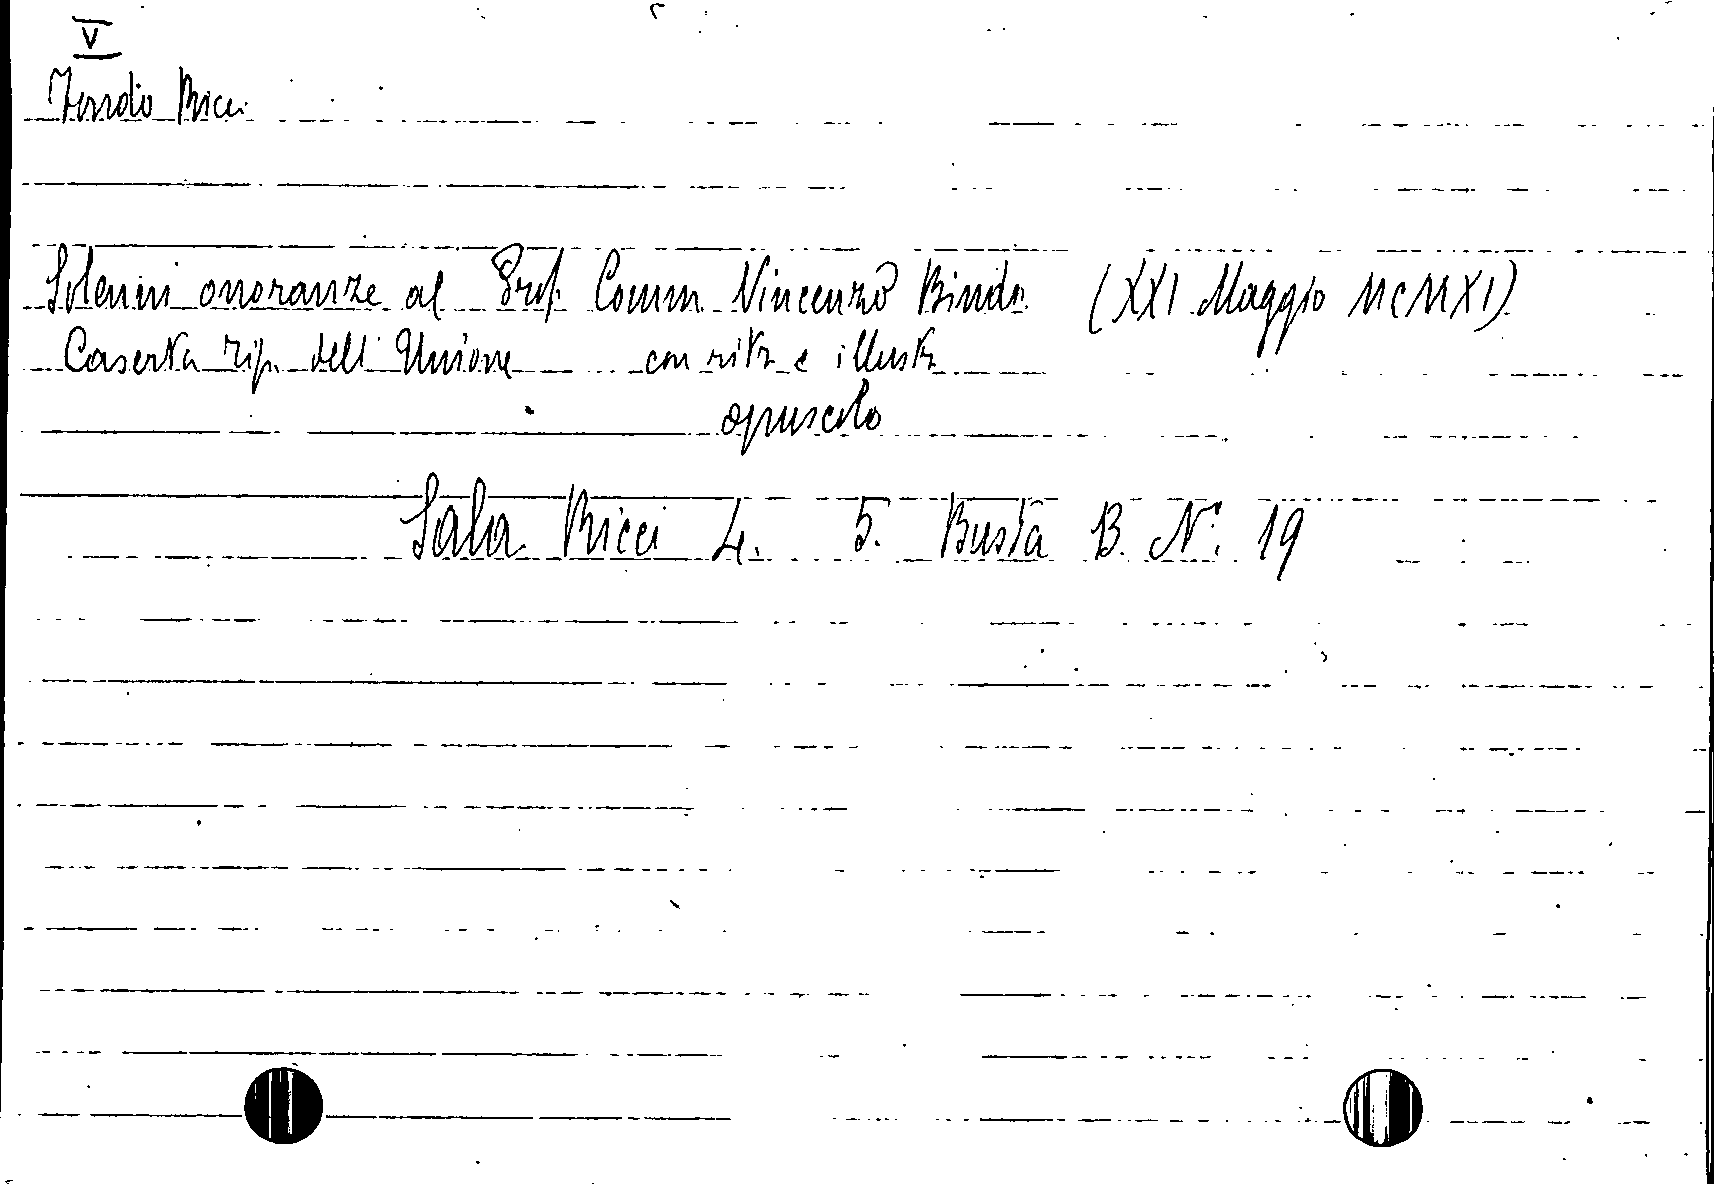 V
Fondo Ricci
Solenni onoranze al Prof. Comm. Vincenzo Bindi (XXI Maggio MCMXI)
Caserta Tip. dell' Unione con ritr e illustr
opuscolo
Sala Ricci 4. 5. Busta B. N. 19